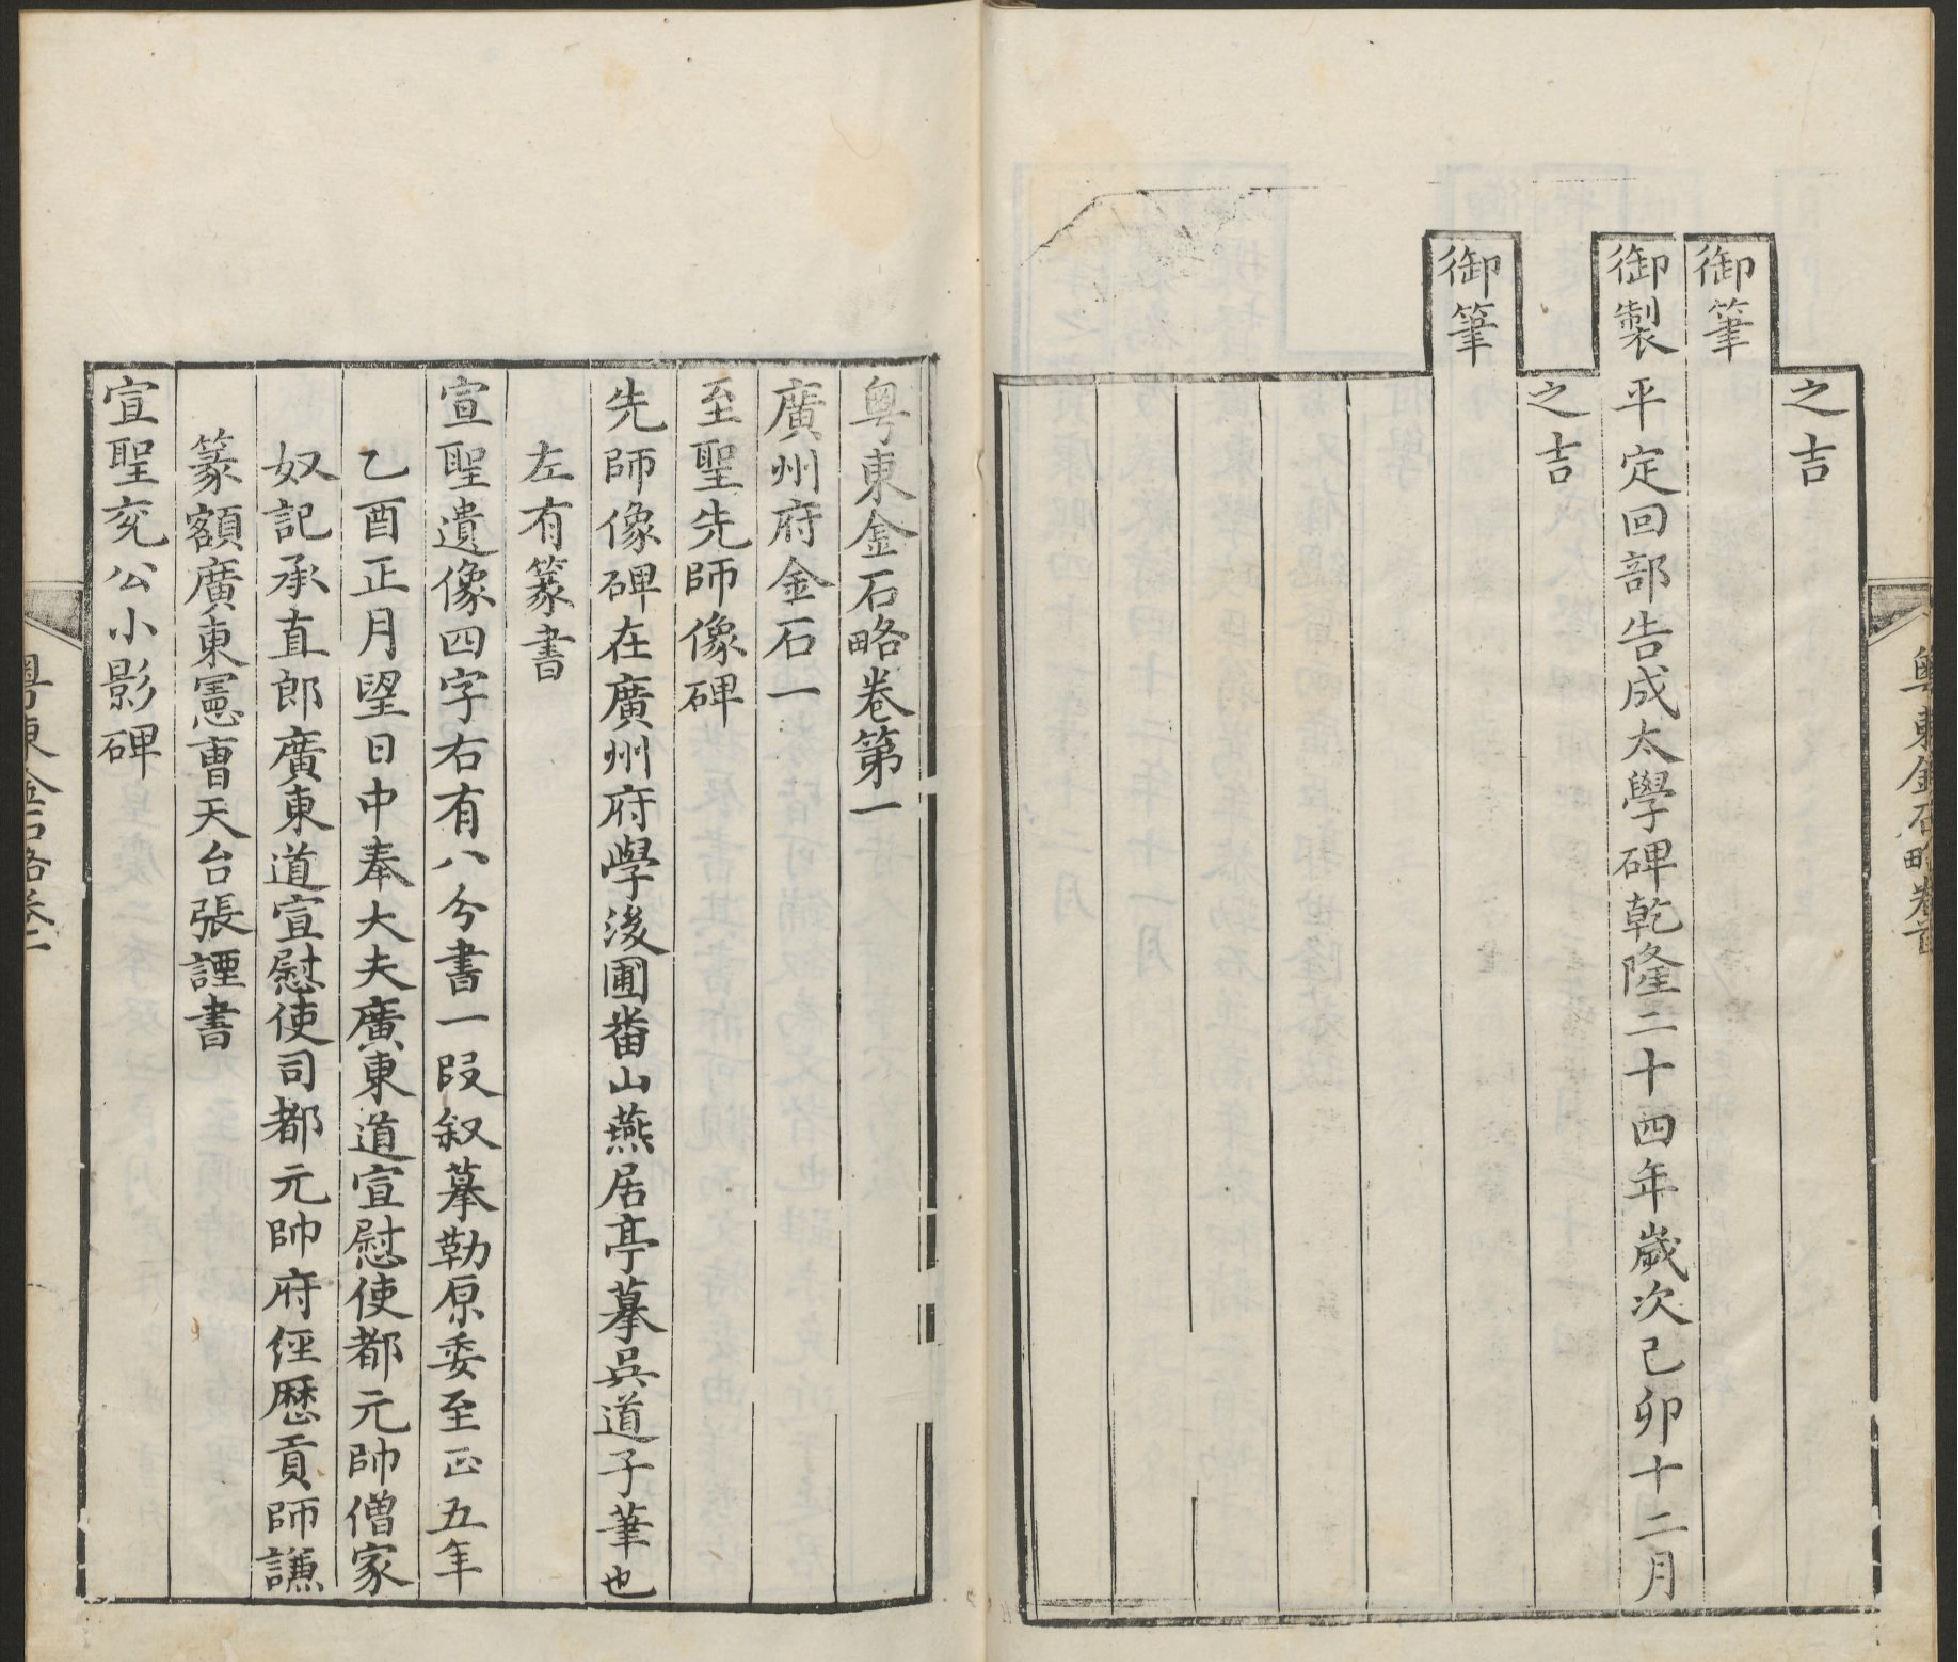 之吉
御筆
御製平定回部告成太學碑乾隆二十四年歲次己卯十二月
之吉
御筆
粵東金石略卷首
粵東金石略卷第一
廣州府金石一
至聖先師像碑
先師像碑在廣州府學後圃番山燕居亭摹吳道子筆也
左有篆書
宣聖遺像四字右有八分書一段叙摹勒原委至正五年
乙酉正月望日中奉大夫廣東道宣慰使都元帥僧家
奴記承直郎廣東道宣慰使司都元帥府經歷貢師謙
篆額廣東憲曹天台張諲書
宣聖兗公小影碑
粵東金石略卷一